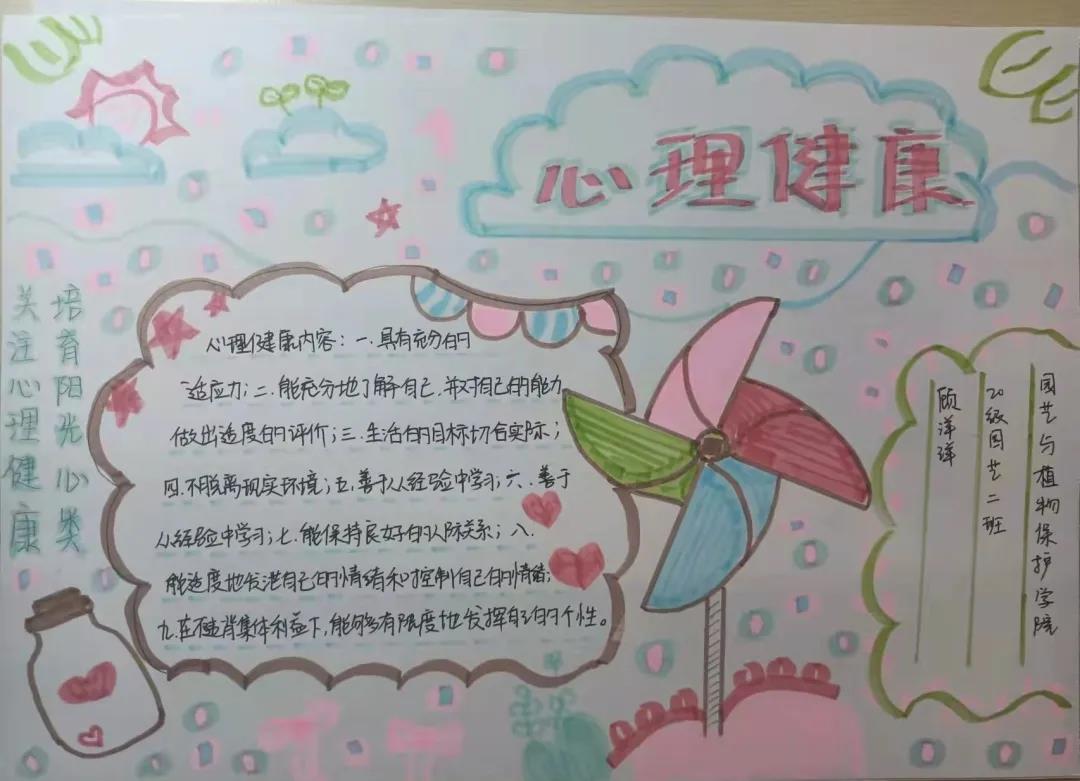 心理健康
培育阳光心类
关注心理健康
心理健康内容：一.具有充分的
适应力；二.能充分地了解自己.并对自己的能力
做出适度的评价；三.生活的目标切合实际；
四.不脱离现实环境；五.善于从经验中学习；六.善于
从经验中学习；七.能保持良好的人际关系；八.
能适度地发泄自己的情绪和控制自己的情绪；
九.在不违背集体利益下，能够有限度地发挥自己的个性。
园艺与植物保护学院
20级园艺二班
顾洋洋